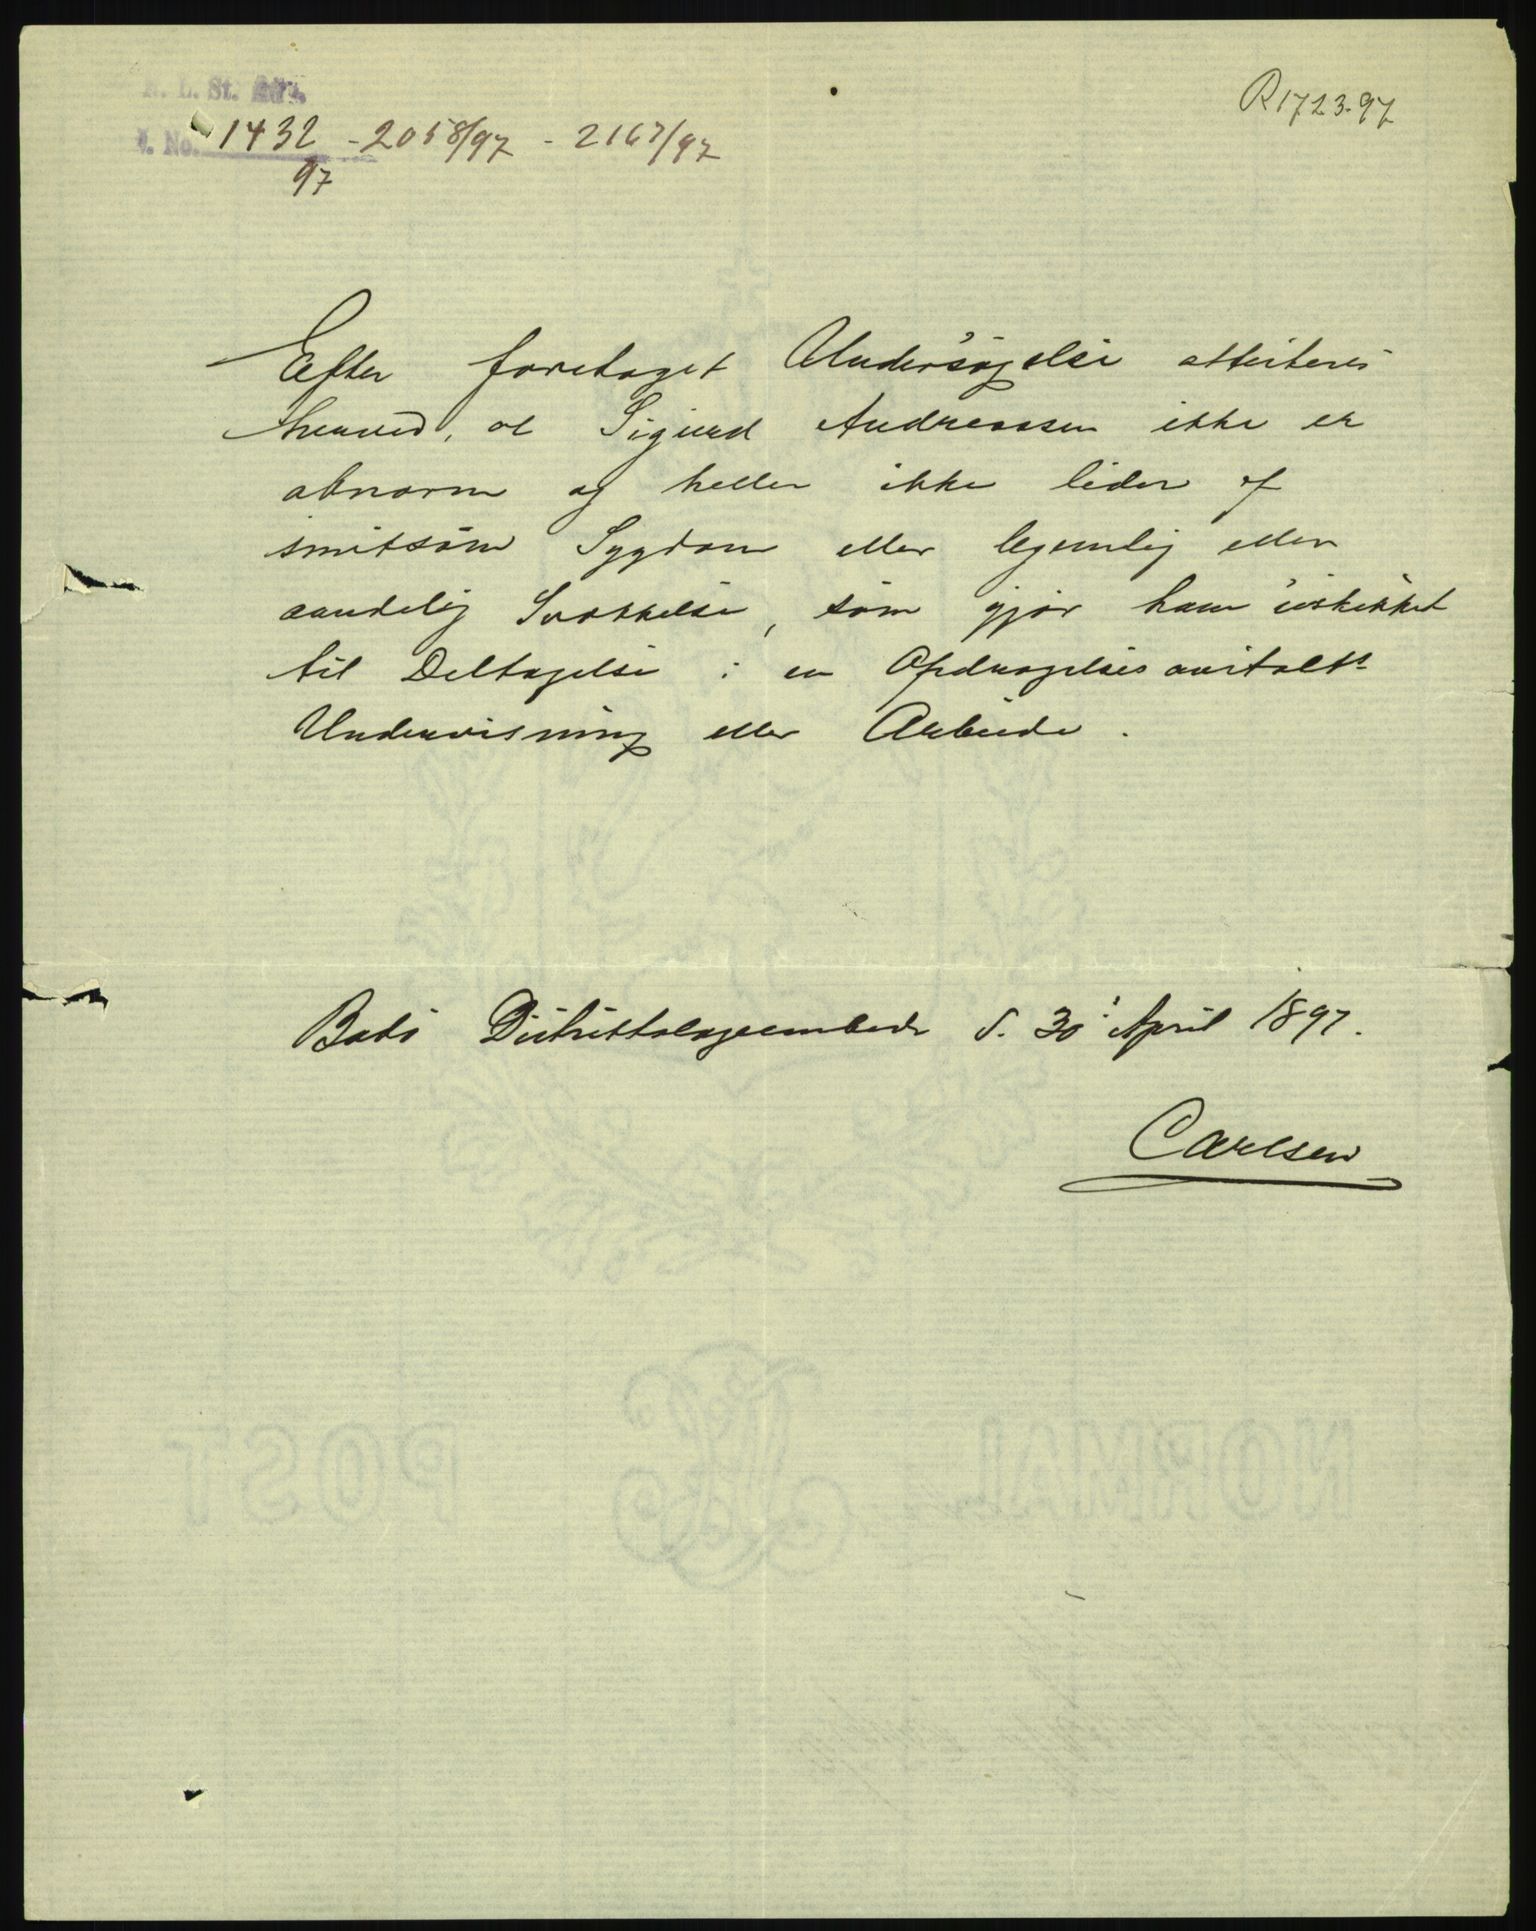 R1723.97
N. L. St. Adv.
J. No. 1432 - 2058/97 - 2167/97
97
Efter foretaget Undersøgelse attesteres
herved, at Sigurd Andreassen ikke er
abnorm og heller ikke lider af
smitsom Sygdom eller legemlig eller
aandelig Svækkelse, som gjør ham uskikket
til Deltagelse i en Opdragelsesanstalts
Undervisning eller Arbeide.
Bodø Distriktslægeembede d. 30 April 1897.
Carlsen
NORMAL
POST